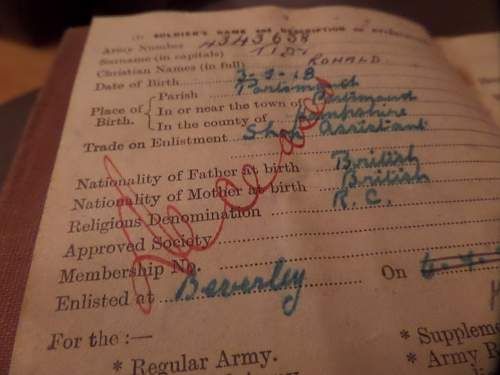 (1) SOLDIER'S NAME AND DESCRIPTION on
Army Number 4343658
Surname (in capitals)
Christian Names (in full) RONALD
Date of Birth
Parish Portsmouth
Place of Birth. In or near the town of Portsmouth
In the county of Hampshire
Trade on Enlistment Shop Assistant
Nationality of Father at birth British
Nationality of Mother at birth British
Religious Denomination R.C.
Approved Society
Membership No.
Enlisted at Beverley On
For the :—
* Regular Army.
* Supplem
* Army R